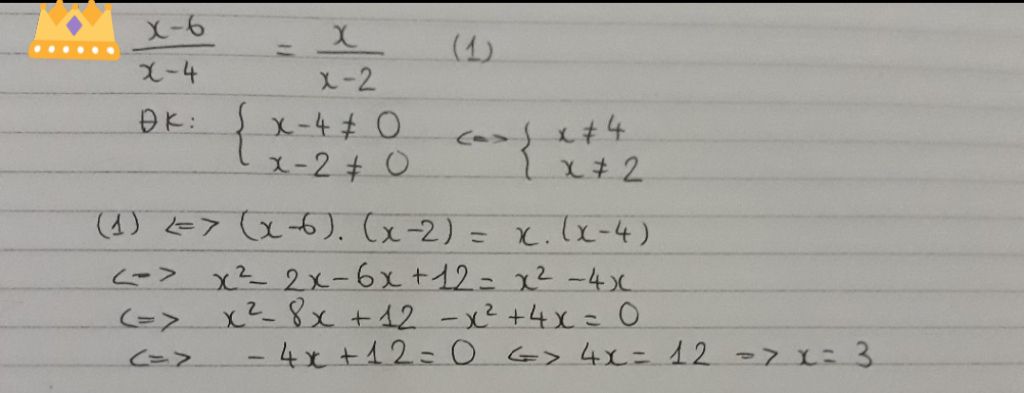 x-6/x-4 = x/x-2 (1)
ĐK: { x-4 ≠ 0 <=> { x ≠ 4
x-2 ≠ 0 x ≠ 2
(1) <=> (x-6).(x-2) = x.(x-4)
<=> x²- 2x-6x+12 = x² -4x
<=> x²- 8x +12 -x² +4x = 0
<=> -4x+12=0 <=> 4x= 12 => x= 3